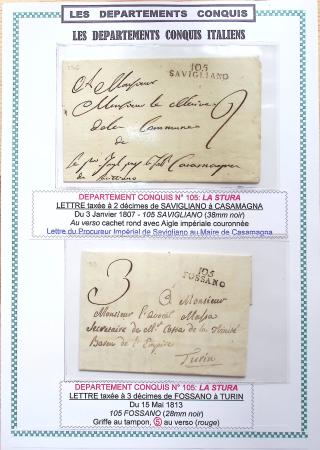 LES DEPARTEMENTS CONQUIS
LES DEPARTEMENTS CONQUIS ITALIENS
105
SAVIGLIANO
A Monsieur
Monsieur le Maire
de la Commune
de
Casamagna
2
DEPARTEMENT CONQUIS N° 105: LA STURA
LETTRE taxée à 2 décimes de SAVIGLIANO à CASAMAGNA
Du 3 Janvier 1807 - 105 SAVIGLIANO (38mm noir)
Au verso cachet rond avec Aigle impériale couronnée
Lettre du Procureur Impérial de Savigliano au Maire de Casamagna
105
FOSSANO
3
A Monsieur
Monsieur l'avocat Massa
Secretaire de Mr
Baron de l'Empire
Turin
DEPARTEMENT CONQUIS N° 105: LA STURA
LETTRE taxée à 3 décimes de FOSSANO à TURIN
Du 15 Mai 1813
105 FOSSANO (28mm noir)
Griffe au tampon, 5 au verso (rouge)